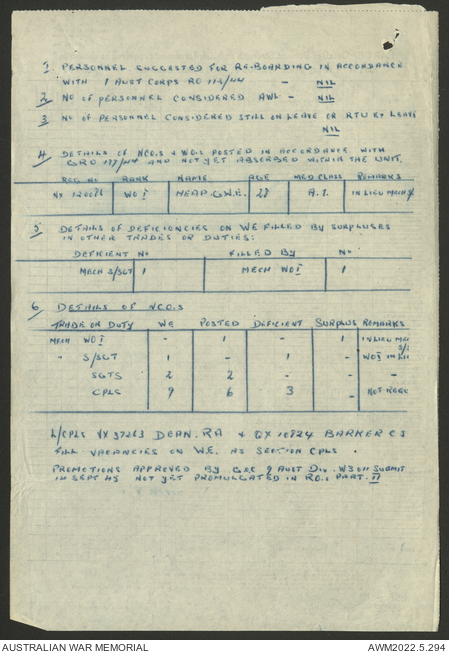 1 PERSONNEL SUGGESTED FOR RE-BOARDING IN ACCORDANCE
WITH 1 AUST CORPS RO 112/44 - NIL
2 NO OF PERSONNEL CONSIDERED AWL - NIL
3 NO OF PERSONNEL CONSIDERED STILL ON LEAVE OR RTU EX LEAVE
NIL
4 DETAILS OF NCO.S & WO.S POSTED IN ACCORDANCE WITH
GRO 177/44 AND NOT YET ABSORBED WITHIN THE UNIT.
REG NO RANK NAME AGE MED CLASS REMARKS
WO I HEAP. G.W.E. 28 A.1. IN LIEU MECH
5 DETAILS OF DEFICIENCIES ON WE FILLED BY SURPLUSES
IN OTHER TRADES OR DUTIES:
DEFICIENT NO FILLED BY NO
MECH S/SGT 1 MECH WO I 1
6 DETAILS OF NCO.S
TRADE OR DUTY WE POSTED DEFICIENT SURPLUS REMARKS
MECH WO I - 1 - 1 IN LIEU
" S/SGT 1 - 1 - WO I IN
SGTS 2 2 - - -
CPLS 9 6 3 - NOT
L/CPLS VX 37263 DEAN. RA & QX 10824 BARKER C J
FILL VACANCIES ON WE. AS SECTION CPLS.
PROMOTIONS APPROVED BY G.O.C 9 AUST DIV. W3011 SUBMIT
IN SEPT 45 NOT YET PROMULGATED IN RO.S PART. II
AUSTRALIAN WAR MEMORIAL
AWM2022.5.294